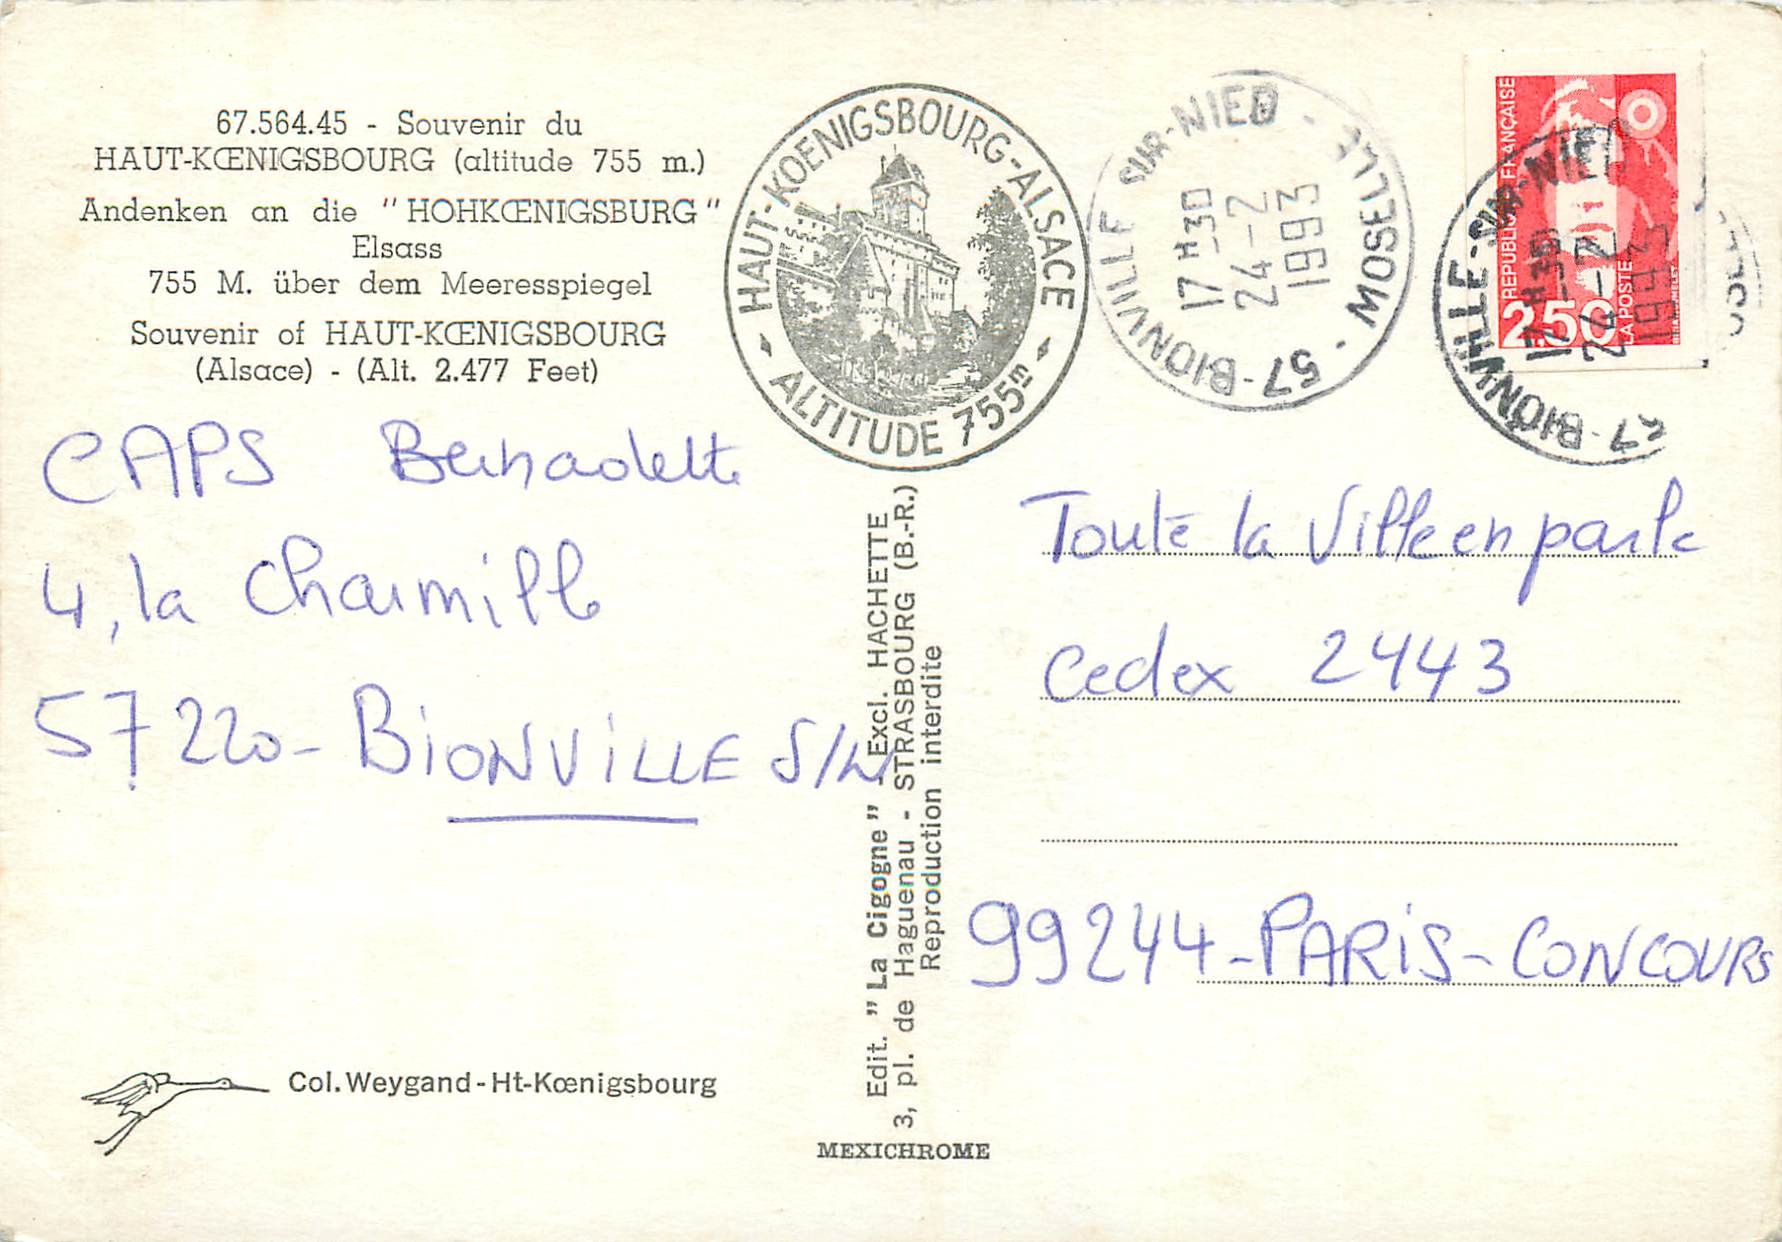 67.564.45 - Souvenir du
HAUT-KŒNIGSBOURG (altitude 755 m.)
Andenken an die "HOHKŒNIGSBURG"
Elsass
755 M. über dem Meeresspiegel
Souvenir of HAUT-KŒNIGSBOURG
(Alsace) - (Alt. 2.477 Feet)
HAUT-KOENIGSBOURG-ALSACE
ALTITUDE 755m
57-BIONVILLE SUR-NIED - MOSELLE
17H30
24-2
1993
REPUBLIQUE FRANÇAISE
2,50
LA POSTE
57-BIONVILLE-SUR-NIED
17H30
24-2
1993
CAPS Bernadette
4, la Charmille
57220 - BIONVILLE S/N
Edit. "La Cigogne" - Excl. HACHETTE
3, pl. de Haguenau - STRASBOURG (B.-R.)
Reproduction interdite
Toute la Ville en parle
Cedex 2443
99244 - PARIS - CONCOURS
Col. Weygand - Ht-Kœnigsbourg
MEXICHROME